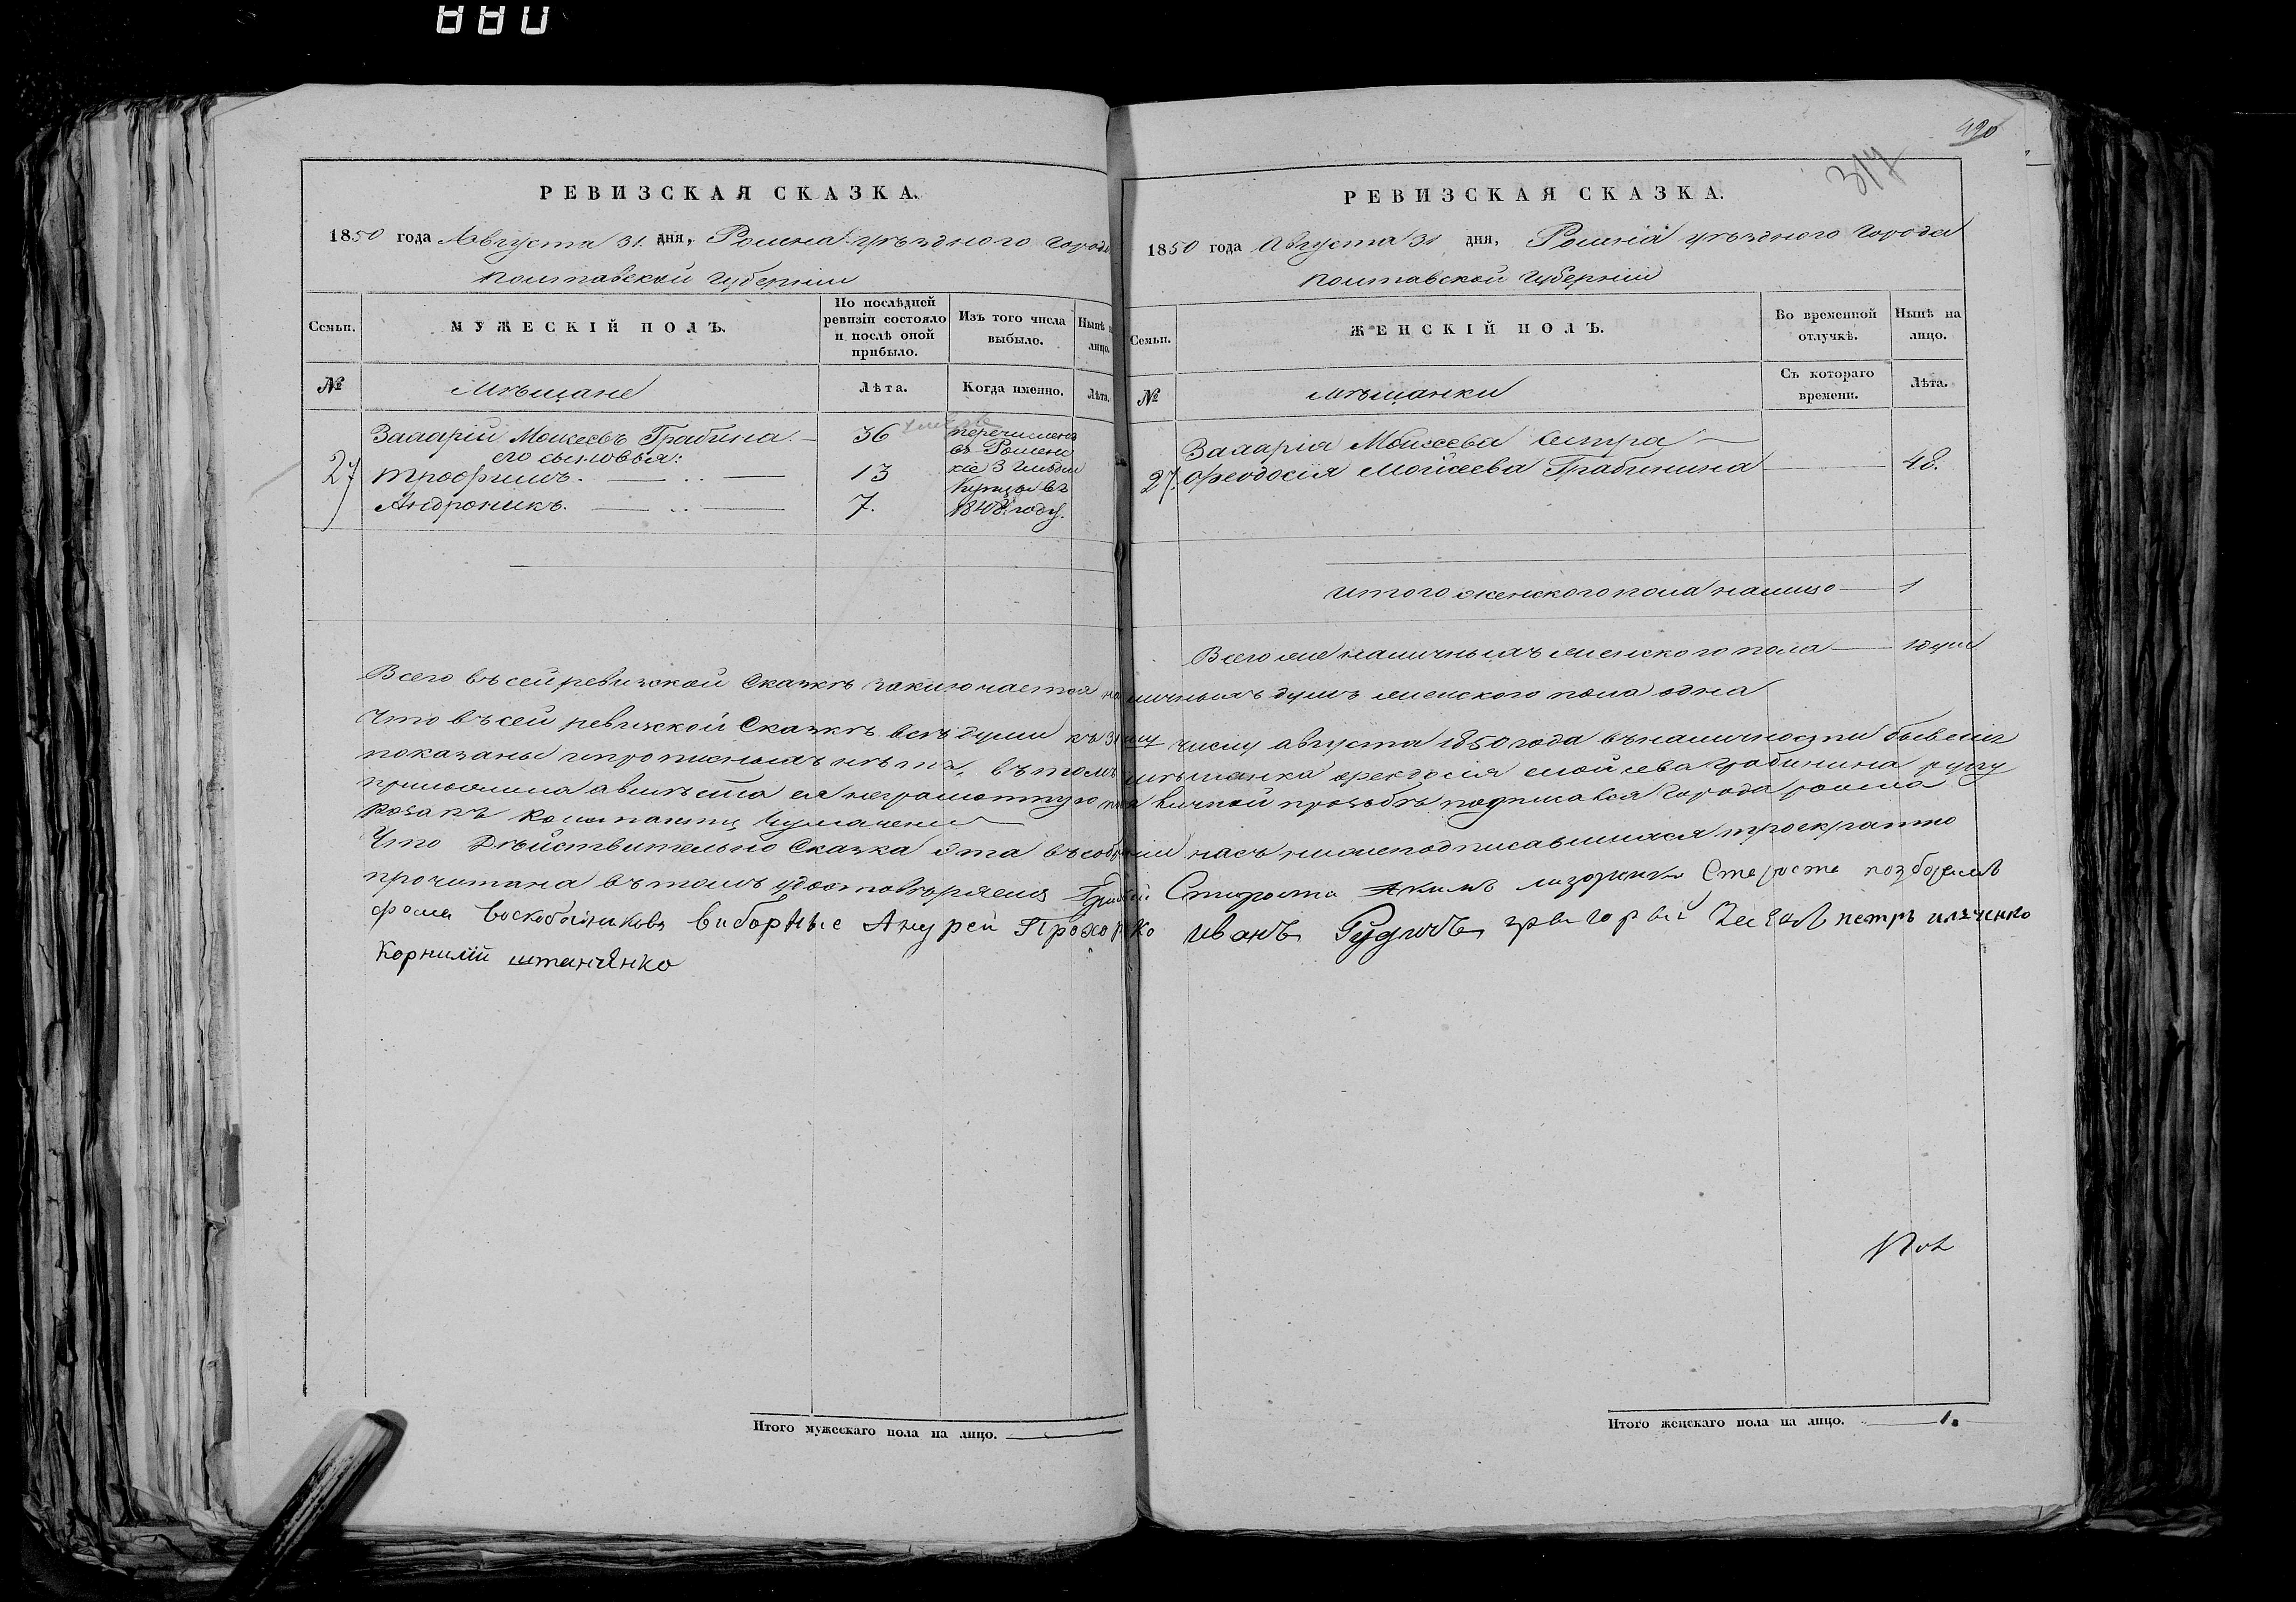 420
317
РЕВИЗСКАЯ СКАЗКА.
1850 года Августа 31. дня, Ромна уѣзднаго города
Полтавской Губерніи
Семьи.
МУЖЕСКІЙ ПОЛЪ.
По послѣдней ревизіи состояло и послѣ оной прибыло.
Изъ того числа выбыло.
Нынѣ на лицо.
№
Мѣщане
Лѣта.
Когда именно.
Лѣта.
27
Захарій Моисеевъ Грабина. 36
его сыновья:
Трофимъ. 13
Андроникъ. 7.
перечислены
въ Роменс
кіе 3 Гильдіи
Купцы въ
1848 году.
Всего въ сей ревизской Сказкѣ заключается наличныхъ душъ женского пола одна
Что въ сей ревизской Сказкѣ всѣ души къ 31му числу августа 1850 года въ наличности бывшія
показаны и прописныхъ нѣтъ, въ томъ мѣщанка Феодосія Моисеева Грабинина руку
приложила а вмѣсто ея неграмотную по личной прозьбѣ подписался Города Ромна
козакъ
Что Дѣйствительно Сказка эта въ собраніи насъ нижеподписавшихся троекратно
прочитана въ томъ удостоверяемъ Староста Акимъ Староста
Фома Воскобойниковъ виборные Андрей Прохорко иванъ Рудичъ петръ ильченко
Корнилій
Итого мужескаго пола на лицо.
РЕВИЗСКАЯ СКАЗКА.
1850 года Августа 31 дня, Ромна уѣзднаго Города
Полтавской Губерніи
Семьи.
ЖЕНСКІЙ ПОЛЪ.
Во временной отлучкѣ.
Нынѣ на лицо.
№
мѣщанки
Съ котораго времени.
Лѣта.
27.
Захарія Моисеева сестра
Феодосія Моисеева Грабинина 48.
Итого женского пола на лицо 1
Всего же наличныхъ женского пола 1 душа
Итого женскаго пола на лицо. 1.